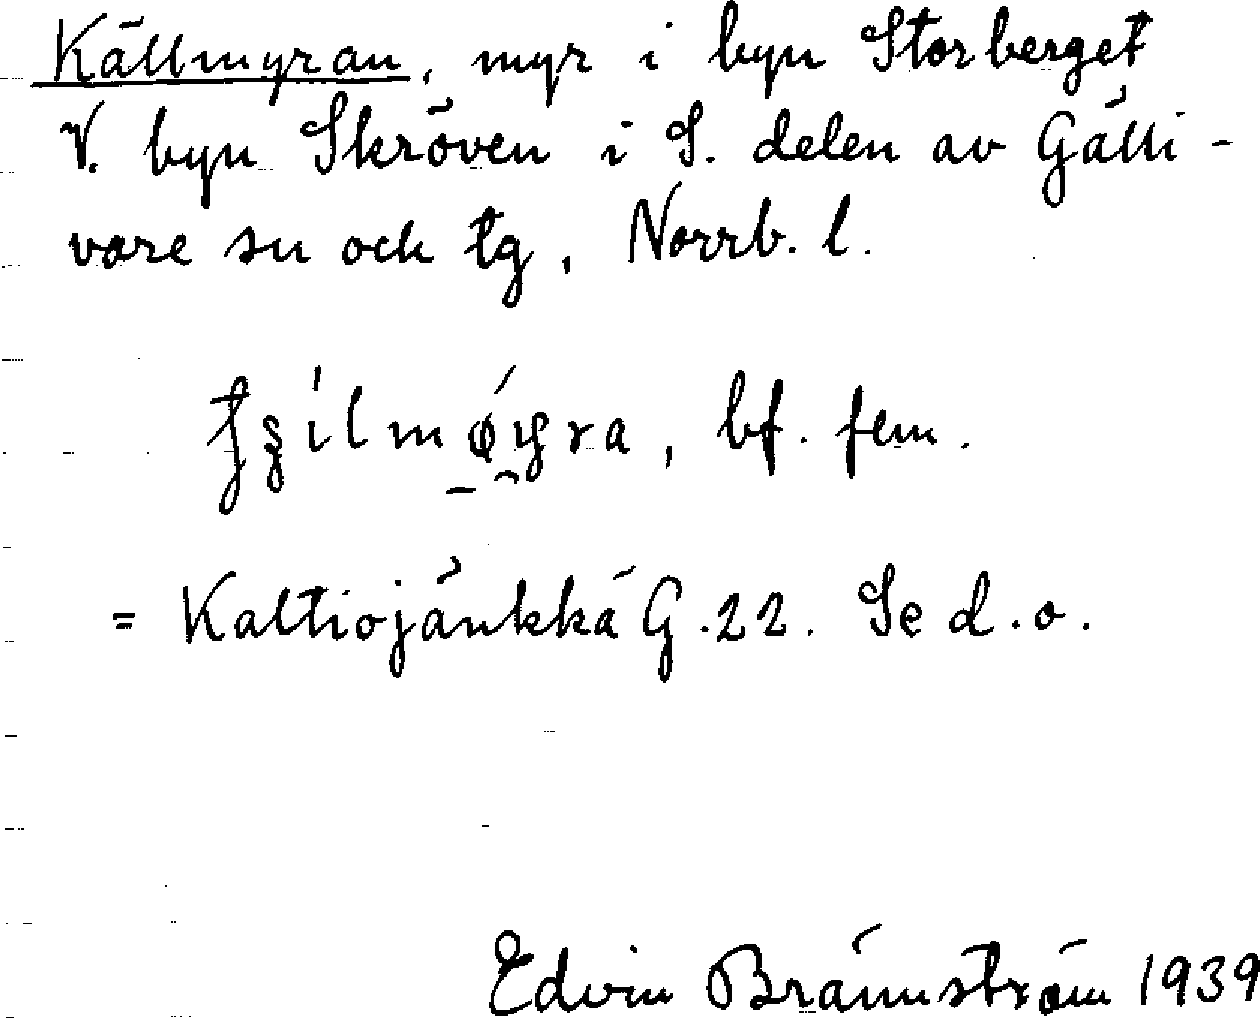 Källmyran, myr i byn Storberget
V. byn Skröven i S. delen av Gälli-
vare sn och tg, Norrb. l.
bf. fem.
= Kaltiojänkkä G.22. Se d.o.
Edvin Brännström 1939